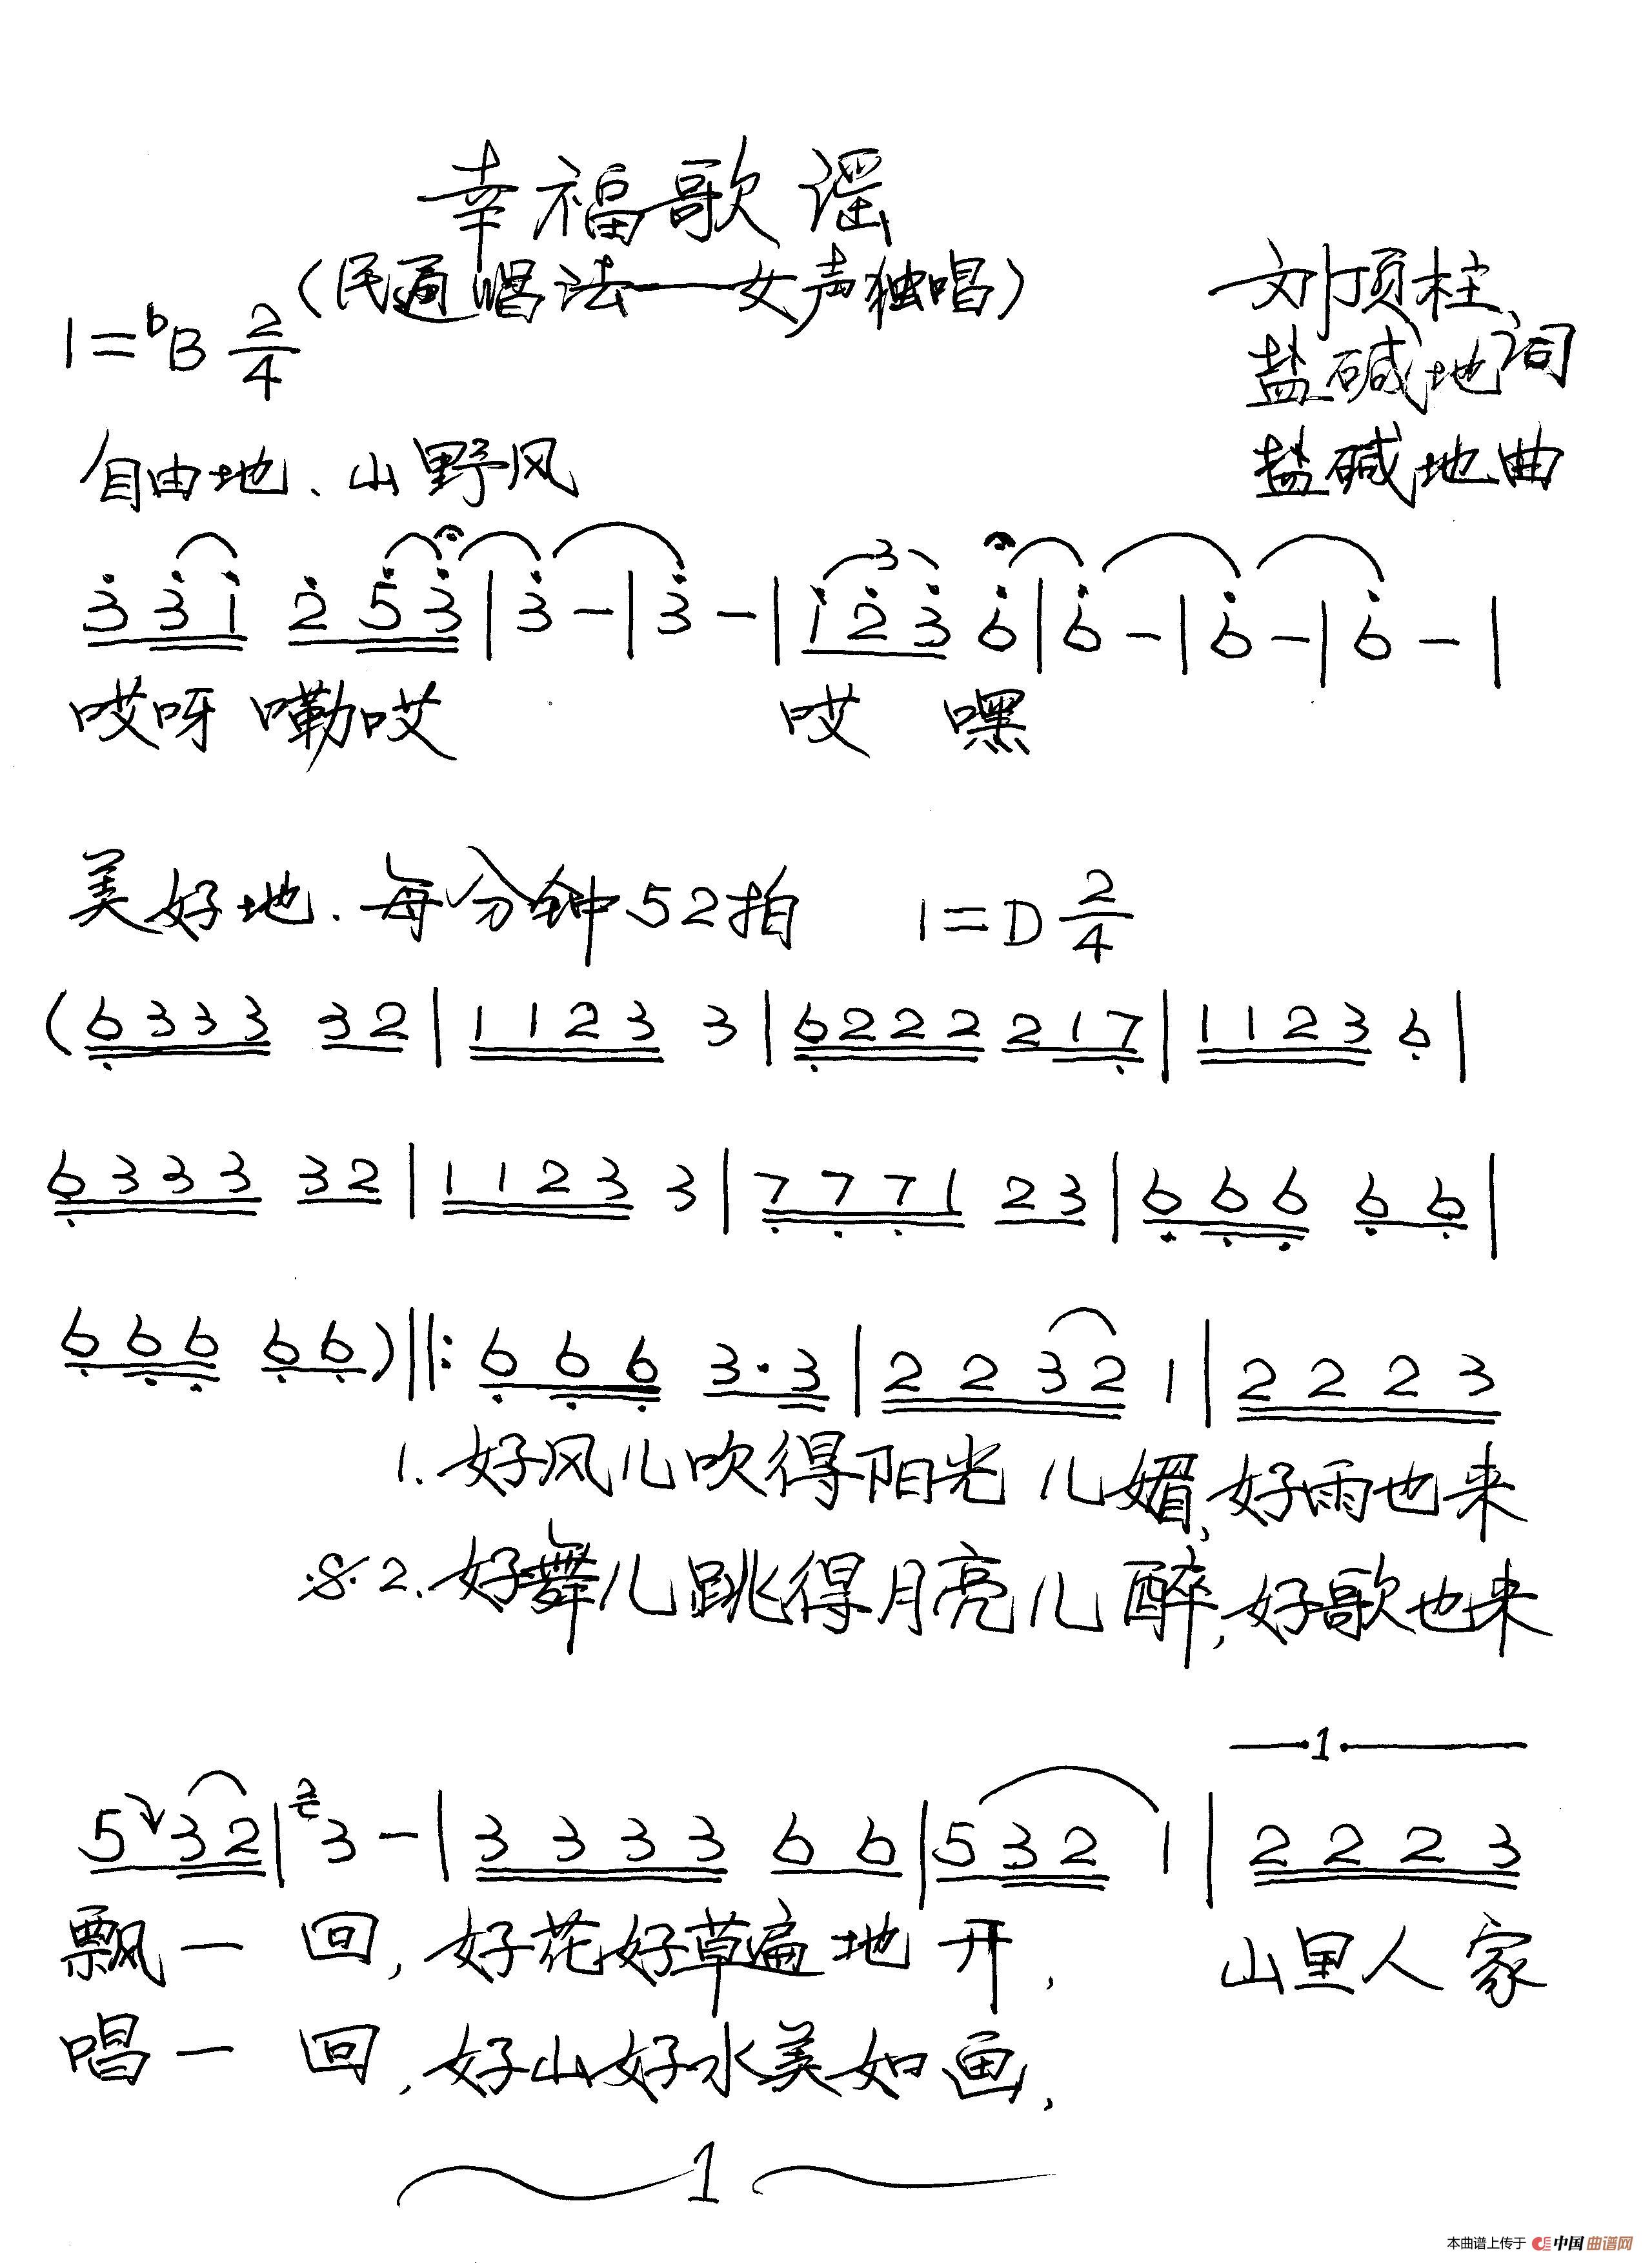 幸福歌谣
（民通唱法——女声独唱）
刘顶柱、
1=bB 2/4
盐碱地词
自由地、山野风
盐碱地曲
3 3 1 2 5 3 | 3 - | 3 - | 1 2 3 6 | 6 - | 6 - | 6 - |
哎呀 嘞哎 哎 嘿
美好地、每分钟52拍 1=D 2/4
(6 3 3 3 3 2 | 1 1 2 3 3 | 6 2 2 2 2 1 7 | 1 1 2 3 6 |
6 3 3 3 3 2 | 1 1 2 3 3 | 7 7 7 1 2 3 | 6 6 6 6 6 |
6 6 6 6 6 )‖: 6 6 6 3·3 | 2 2 3 2 1 | 2 2 2 3
1.好风儿吹得阳光 儿媚,好雨也来
2.好舞儿跳得月亮儿醉,好歌也来
1.
5 3 2 | 3 - | 3 3 3 3 6 6 | 5 3 2 1 | 2 2 2 3
飘一 回,好花好草遍地 开, 山里人家
唱一 回,好山好水美如画,
1
本曲谱上传于 中国曲谱网